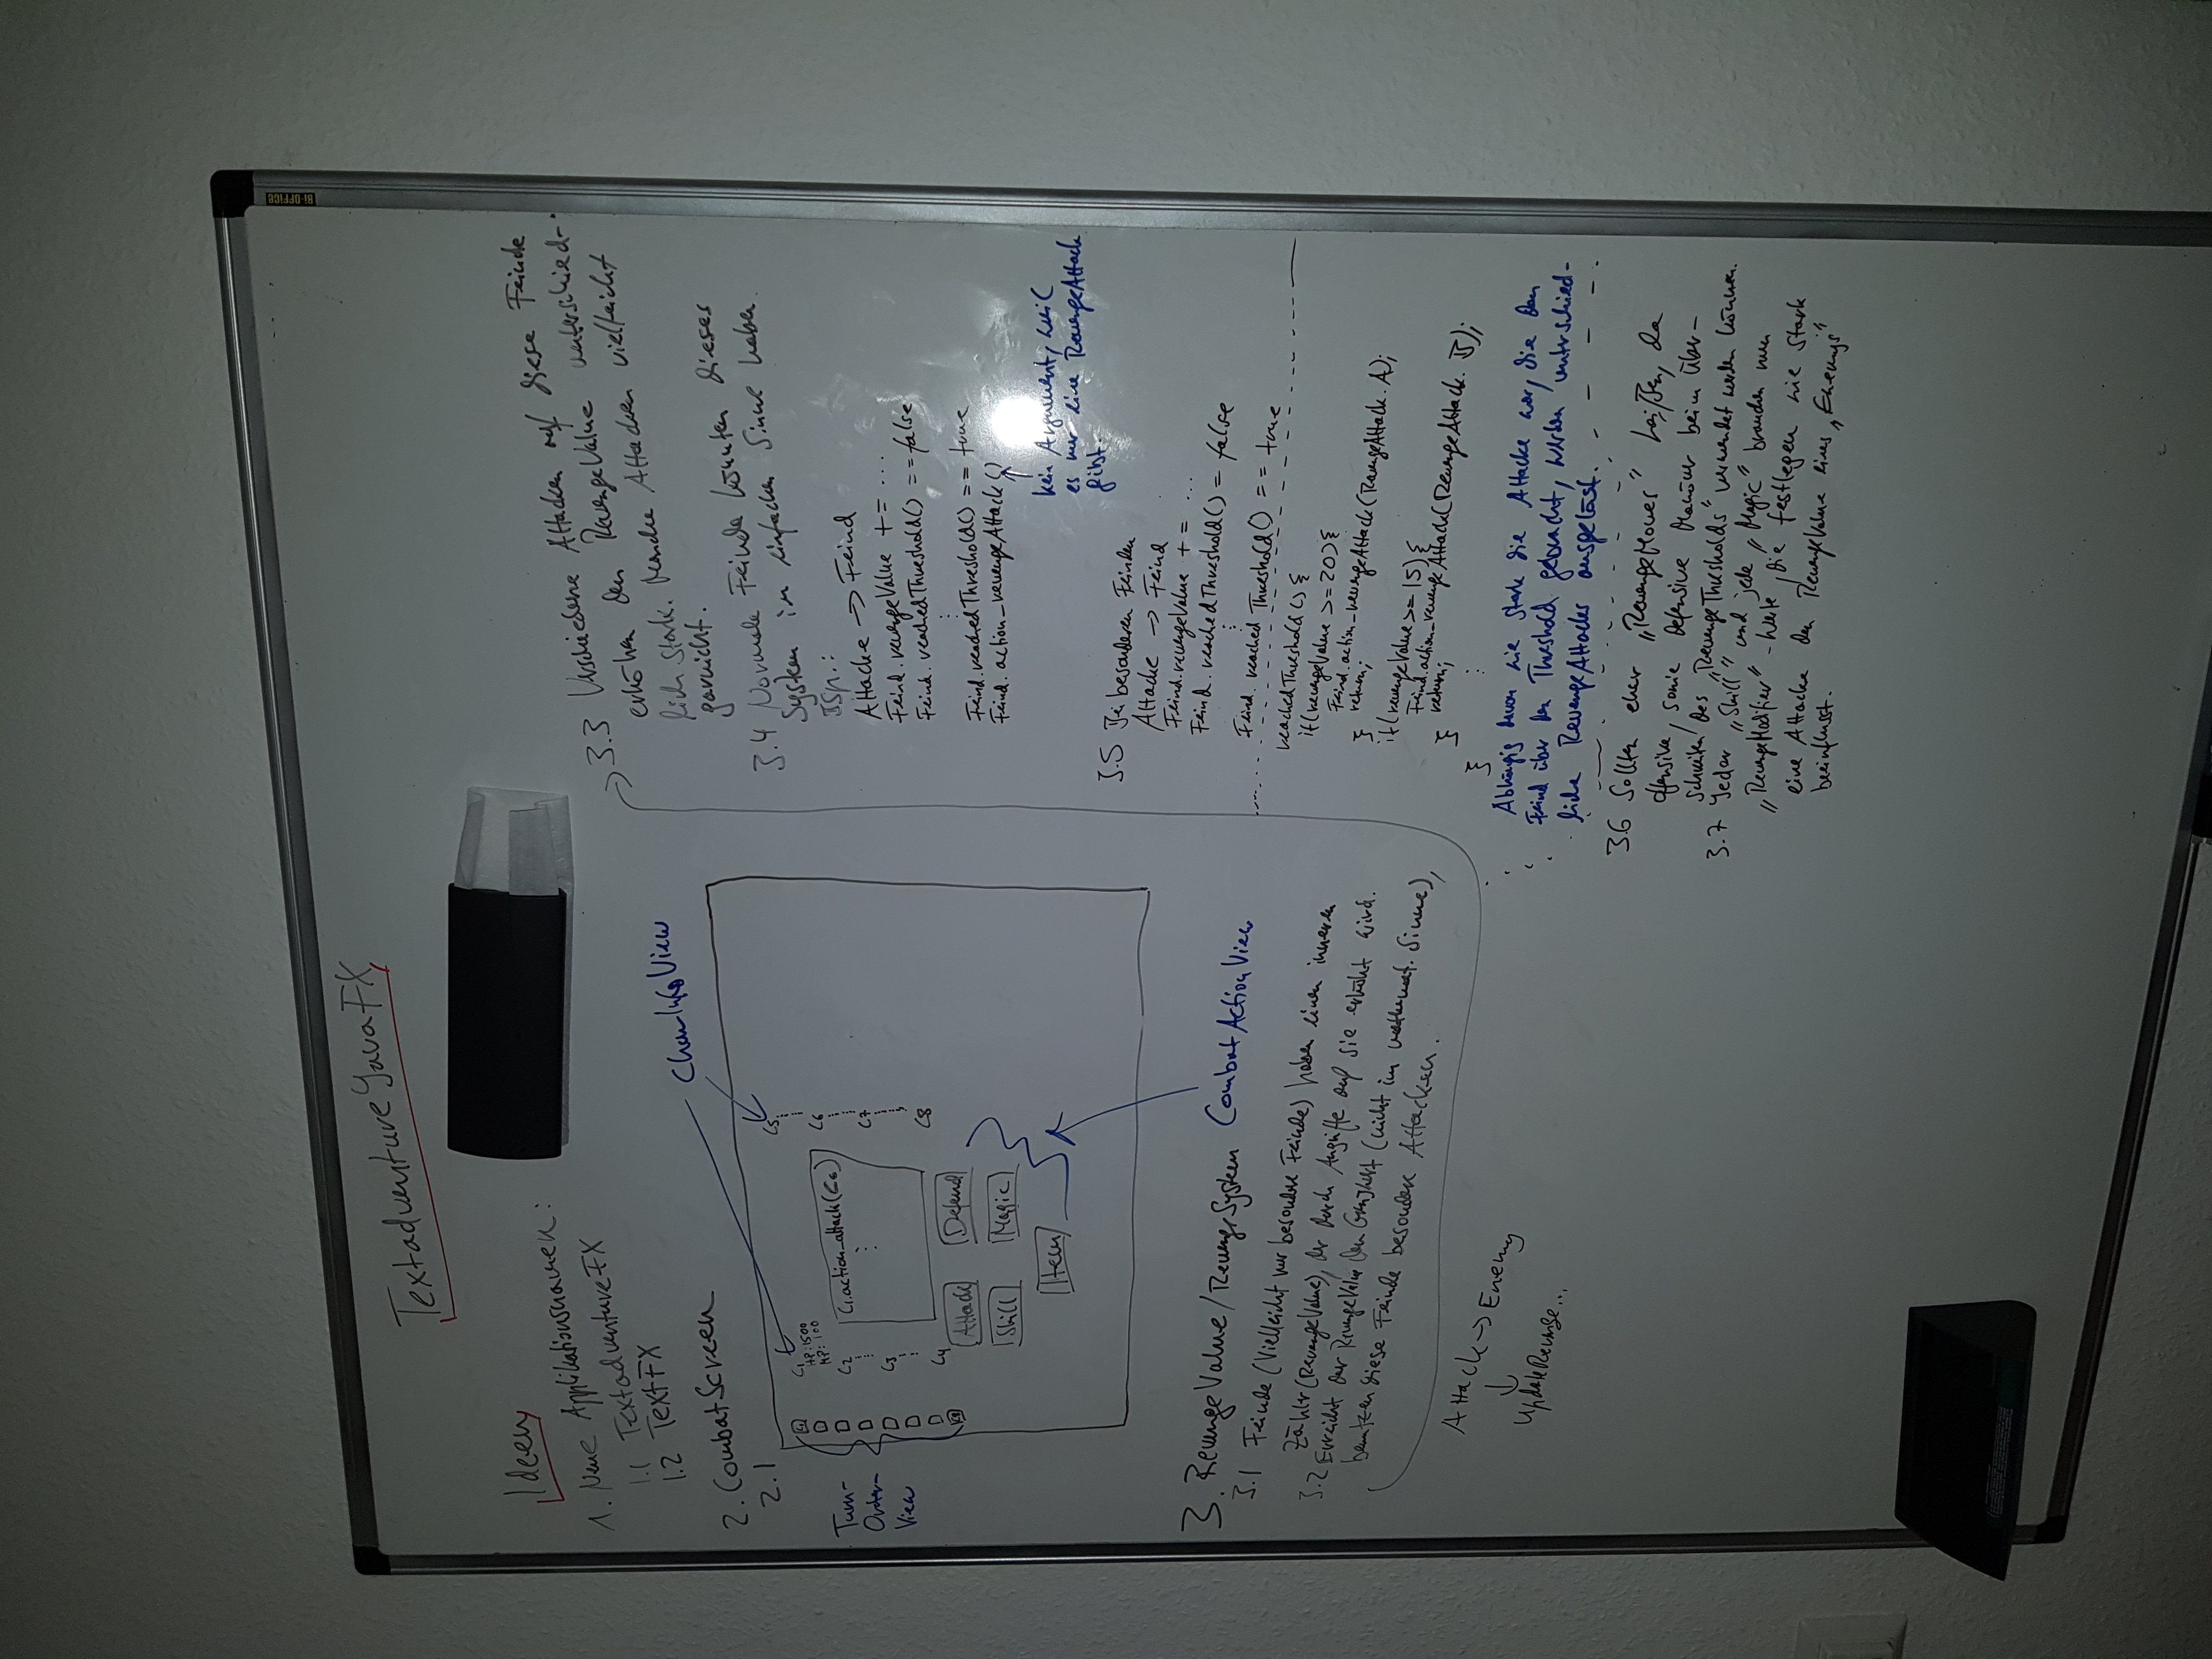 Hi-OFFICE
TextadventureJavaFX
Ideen
1. Neue Applikationsnamen:
1.1 TextadventureFX
1.2 TextFX
2. CombatScreen
2.1
CharInfoView
Turn-
Order-
View
C1
HP:1500
MP:100
C2
C3
C4
C1.action_attack(C6)
C5
C6
C7
C8
Attack
Defend
Skill
Magic
Item
CombatActionView
3. RevengeValue/RevengeSystem
3.1 Feinde (Vielleicht nur besondere Feinde) haben einen inneren
Zähler (RevengeValue), der durch Angriffe auf sie erhöht wird.
3.2 Erreicht der RevengeValue den Grenzwert (nicht im mathemat. Sinne),
benutzen diese Feinde besondere Attacken.
Attack -> Enemy
UpdateRevenge...
3.3 Verschiedene Attacken auf diese Feinde
erhöhen den RevengeValue unterschied-
lich stark. Manche Attacken vielleicht
garnicht.
3.4 Normale Feinde könnten dieses
System im einfachen Sinne haben.
Bsp.:
Attacke -> Feind
Feind.revengeValue += ...
Feind.reachedThreshold() == false
Feind.reachedThreshold() == true
Feind.action_revengeAttack()
kein Argument, weil
es nur eine RevengeAttack
gibt.
3.5 Bei besonderen Feinden
Attacke -> Feind
Feind.revengeValue += ...
Feind.reachedThreshold() = false
Feind.reachedThreshold() == true
reachedThreshold() {
if(revengeValue >= 20) {
Feind.action_revengeAttack(RevengeAttack.A);
return;
}
if(revengeValue >= 15) {
Feind.action_revengeAttack(RevengeAttack.B);
return;
}
}
Abhängig davon wie stark die Attacke war, die den
Feind über den Threshold gebracht, werden unterschied-
liche RevengeAttacks ausgelöst.
3.6 Sollten eher „RevengeMoves" heißen, da
offensive, sowie defensive Manöver beim Über-
schreiten des „RevengeThresholds" verwendet werden können.
3.7 Jeder „Skill" und jede „Magic" brauchen nun
„RevengeModifier"-Werte, die festlegen wie stark
eine Attacke den RevengeValue eines „Enemys"
beeinflusst.